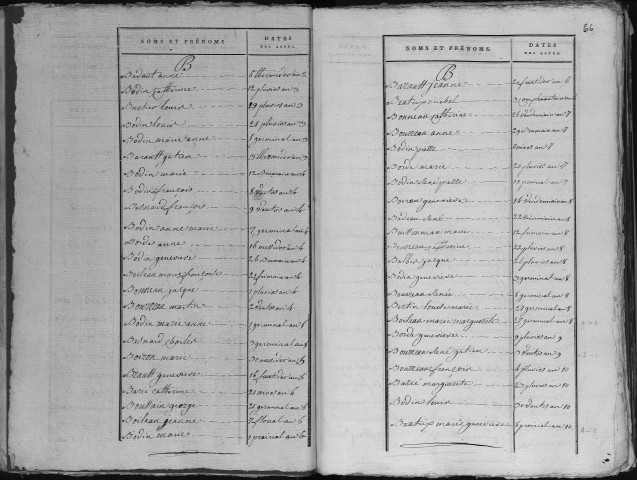 NOMS ET PRÉNOMS DATES DES ACTES.
B
Badaut anne 6 thermidor an 2
Bodin catherine 12 pluvios an 3
Bustier louis 29 pluvios an 3
Bodin louis 21 pluvios an 3
Bodin marie anne 1 germinal an 3
Barault gatien 3 thermidor an 3
Bodin marie 12 brumaire an 4
Bodin francois 8 ventos an 4
Besnard françois 9 ventos an 4
Bodin anne marie 7 germinal an 4
Borde anne 16 messidor an 4
Bodin genevieve 26 brumaire an 4
Boileau marie francoise 21 frimaire an 4
Bonneau jacque 1 pluvios an 6
Bourreau martin 2 ventos an 4
Bodin marie anne 1 germinal an 5
Besnard charles 3 germinal an 5
Boizen marie 30 messidor an 5
Brault genevieve 16 fructidor an 5
Barié catherine 21 nivos an 6
Boullain george 21 germinal an 6
Boileau jeanne 2 floreal an 6
Bodin marie 1 prairial an 6
86
NOMS ET PRÉNOMS. DATES DES ACTES.
B
Barault jeanne 22 fructidor an 6
Bratix michel 3 complementaire an 6
Bonneau catherine 26 vendemiaire an 7
Bourreau anne 29 brumaire an 7
Bodin nivos an 7
Borde marie 20 pluvios an 7
Bodin René 17 germinal an 7
Boizen genevieve 14 vendemiaire an 8
Bedeau René 22 brumaire an 8
marie 12 frimaire an 8
Bourreau catherine 22 pluvios an 8
Balbie jacque 26 pluvios an 8
Bodin genevieve 3 germinal an 8
Bourreau Renée 6 germinal an 8
Bertin louise marie 29 germinal an 8
Boileau marie marguerite 29 germinal an 8
Borde genevieve 9 pluvios an 9
Bourreau René gatien 3 ventos an 9
Bourreau francois 6 pluvios an 10
Barié marguerite 23 pluvios an 10
Bodin louis 30 ventos an 10
Bratix marie genevieve 6 prairial an 10